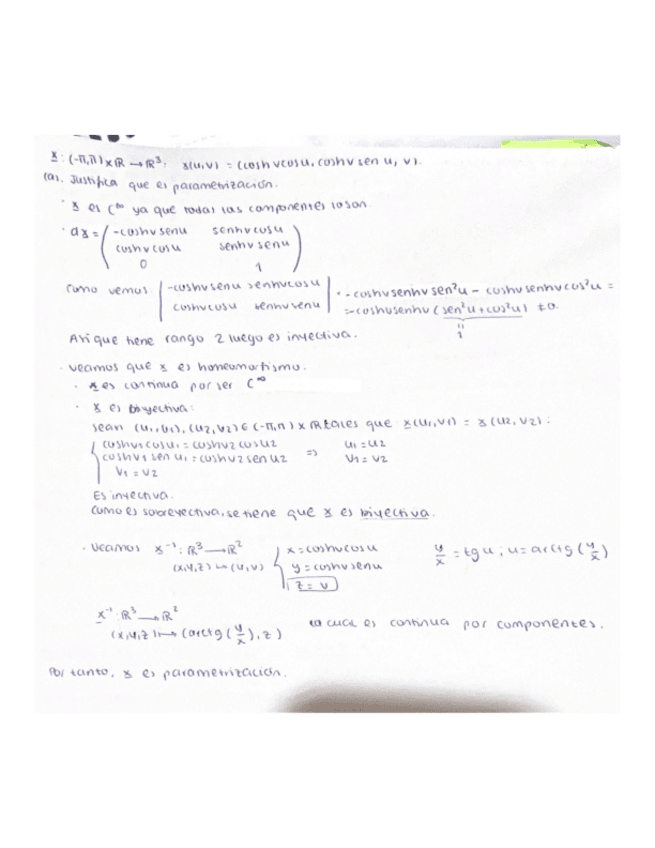 x : (-π,π) x ℝ → ℝ³, x(u,v) = (coshvcosu, coshv sen u, v).
(a). Justifica que es parametrización.
· x es C^∞ ya que todas las componentes lo son
· dx = ( -coshvsenu senhvcosu
coshvcosu senhvsenu
0 1 )
Como vemos | -coshvsenu senhvcosu | = -coshvsenhvsen²u - coshvsenhvcos²u =
| coshvcosu senhvsenu | = -coshvsenhv (sen²u + cos²u) ≠ 0
1
Así que tiene rango 2 luego es inyectiva.
· veamos que x es homeomorfismo.
· x es continua por ser C^∞
· x es biyectiva:
sean (u₁,v₁), (u₂,v₂) ∈ (-π,π) x ℝ tales que x(u₁,v₁) = x(u₂,v₂):
{ coshv₁cosu₁ = coshv₂cosu₂ u₁=u₂
coshv₁ sen u₁ = coshv₂ sen u₂ => v₁=v₂
v₁ = v₂
Es inyectiva.
Como es sobreyectiva, se tiene que x es biyectiva.
· veamos x⁻¹: ℝ³ → ℝ² { x = coshvcosu y/x = tgu ; u = arctg(y/x)
(x,y,z) ↦ (u,v) y = coshvsenu
z = v
x⁻¹: ℝ³ → ℝ²
(x,y,z) ↦ (arctg(y/x), z) la cual es continua por componentes.
Por tanto, x es parametrización.